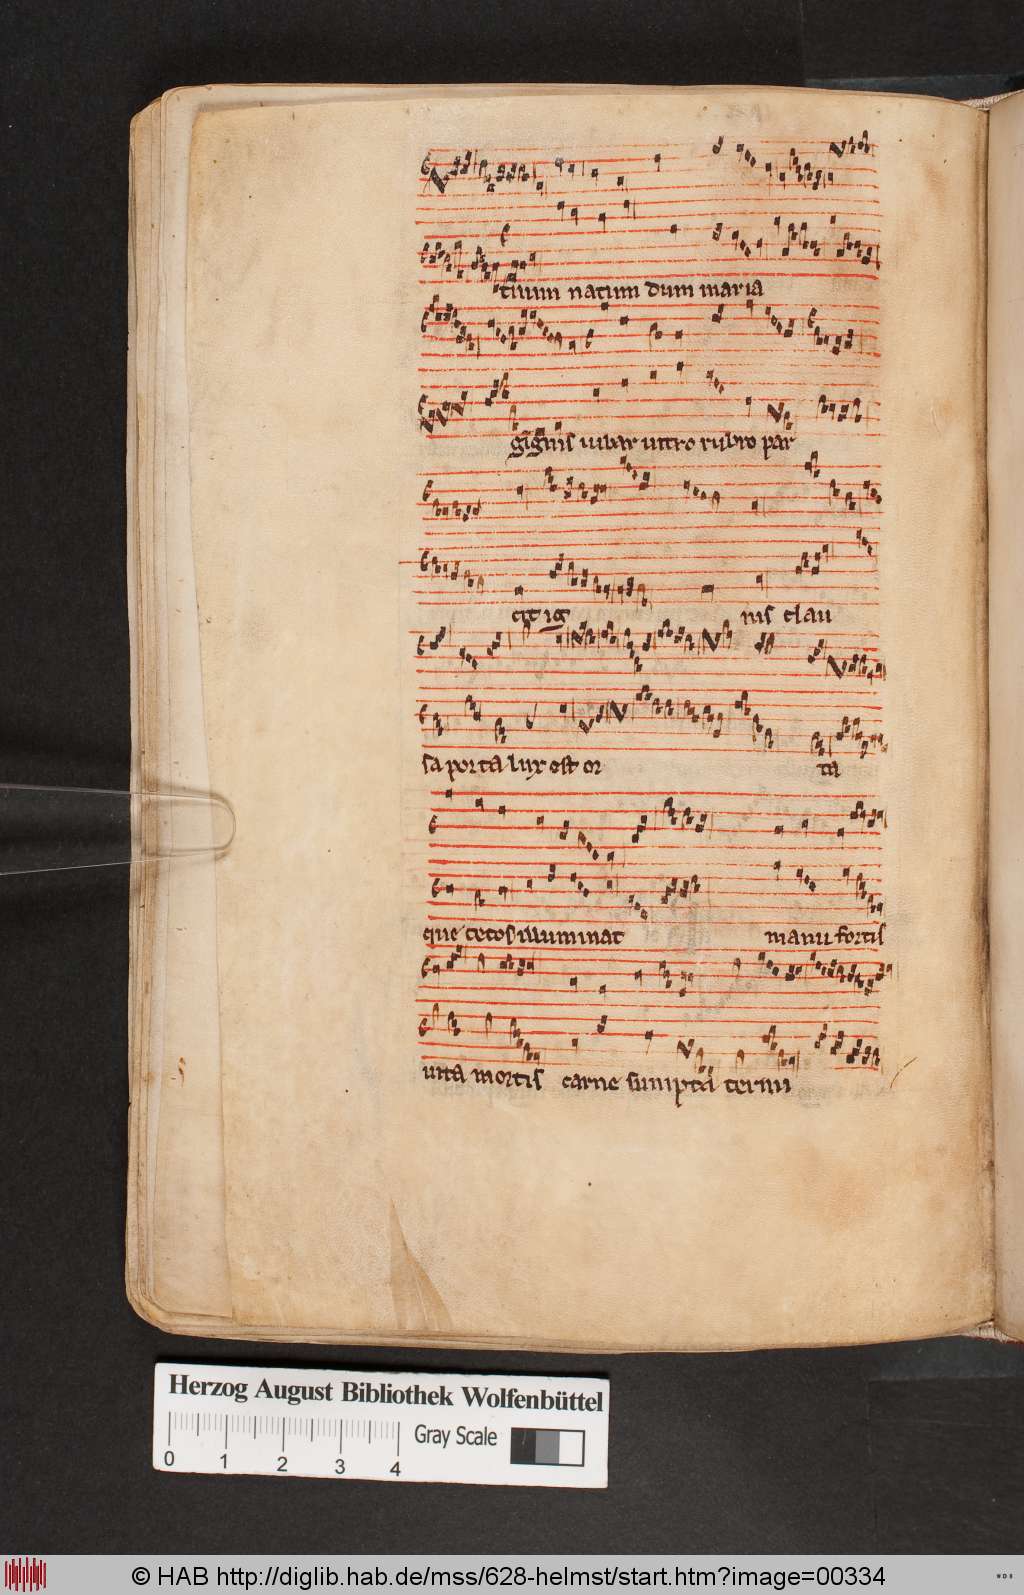 tiuum natum dum maria
gignis iubar uitro rubro par
cit ig nis clau
sa porta lux est or ta
que cecos illuminat manu fortis
uita mortis carne sumpta termi
Herzog August Bibliothek Wolfenbüttel
Gray Scale
0 1 2 3 4
© HAB http://diglib.hab.de/mss/628-helmst/start.htm?image=00334